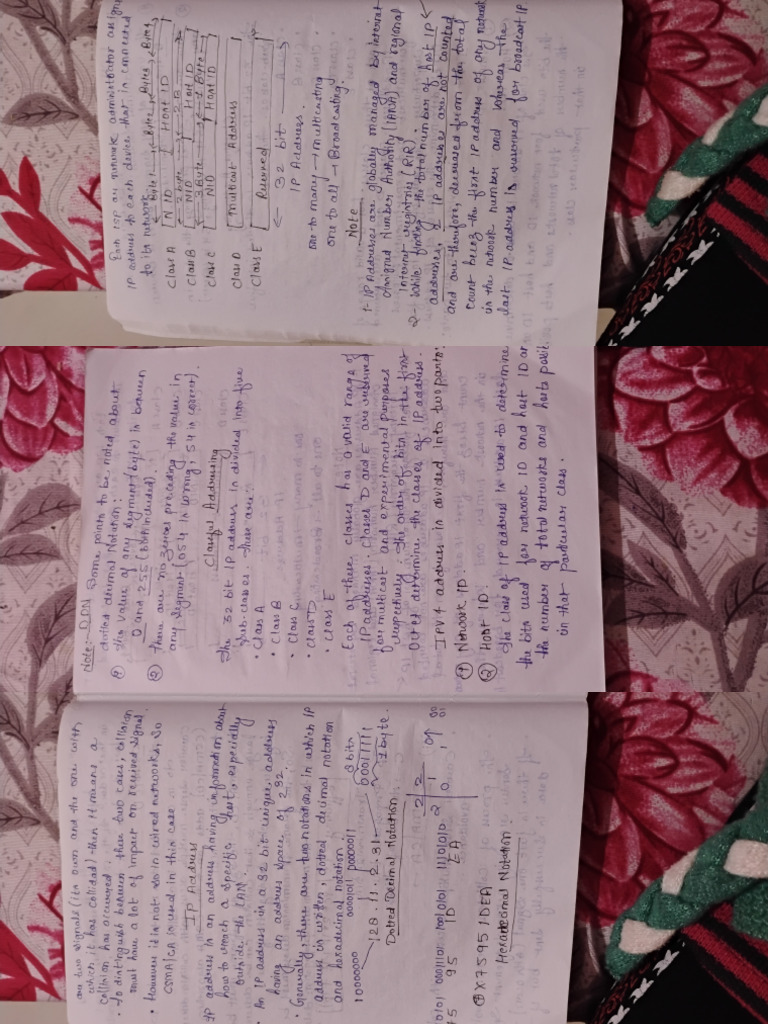 are two signals (its own and the one with
which it has collided) then it means a
collision has occurred.
• To distinguish between these two cases, collision
must have a lot of impact on received signal.
• However it is not so in wired networks, so
CSMA/CA is used in this case
IP Address
IP address is an address having information about
how to reach a specific host, especially
outside the LAN.
• An IP address is a 32 bit unique address
having an address space of 232.
• Generally, there are two notations in which IP
address is written, dotted decimal notation
and hexadecimal notation
8 bits
10000000 00001011 00000011 00011111
1 byte.
128 . 11 . 2 . 31
Dotted Decimal Notation
0101 00011101 11101010
75 95 1D EA
0X75951DEA
Hexadecimal Notation
Note:- DDN Some points to be noted about
dotted decimal Notation:
① The value of any segment (byte) is between
0 and 255 (both included).
② There are no zeroes preceding the value in
any segment (054 is wrong, 54 is correct).
Classful Addressing
The 32 bit IP address is divided into five
sub-classes. These are:
• Class A
• Class B
• Class C
• Class D
• Class E
Each of these classes has a valid range of
IP addresses. Classes D and E are reserved
for multicast and experimental purposes
respectively. The order of bits in the first
octet determine the classes of IP address.
IPV4 address is divided into two parts:
① Network ID
② Host ID
The class of IP address is used to determine
the bits used for network ID and host ID an
the number of total networks and hosts possi
in that particular class.
Each ISP or network administrator assigns
IP address to each device that is connected
to its network.
Byte 1 Byte Byte Byte
Class A NID Host ID
2 byte 2B
Class B NID Host ID
3 Byte 1 Byte
Class C NID Host ID
Class D Multicast Address
Class E Reserved
32 bit
IP Address.
one to many → multicasting
one to all → Broadcasting.
Note
1- IP Addresses are globally managed by internet
Assigned Numbers Authority (IANA) and regional
Internet registries (RIR).
2- While finding the total number of host IP
addresses, 2 IP addresses are not counted
and are therefore, decreased from the total
count being the first IP address of any network
is the network number and whereas the
last IP address is reserved for broadcast IP